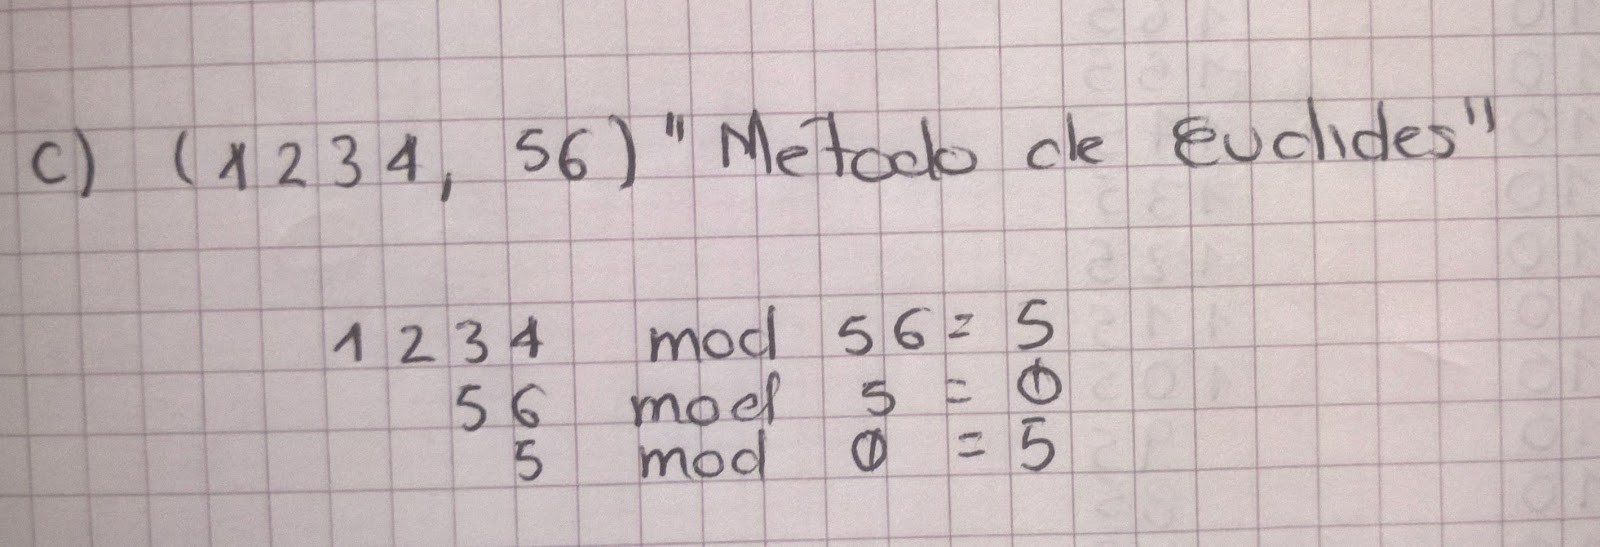 c) (1234, 56) "Metodo de Euclides"
1234 mod 56 = 5
56 mod 5 = 0
5 mod 0 = 5